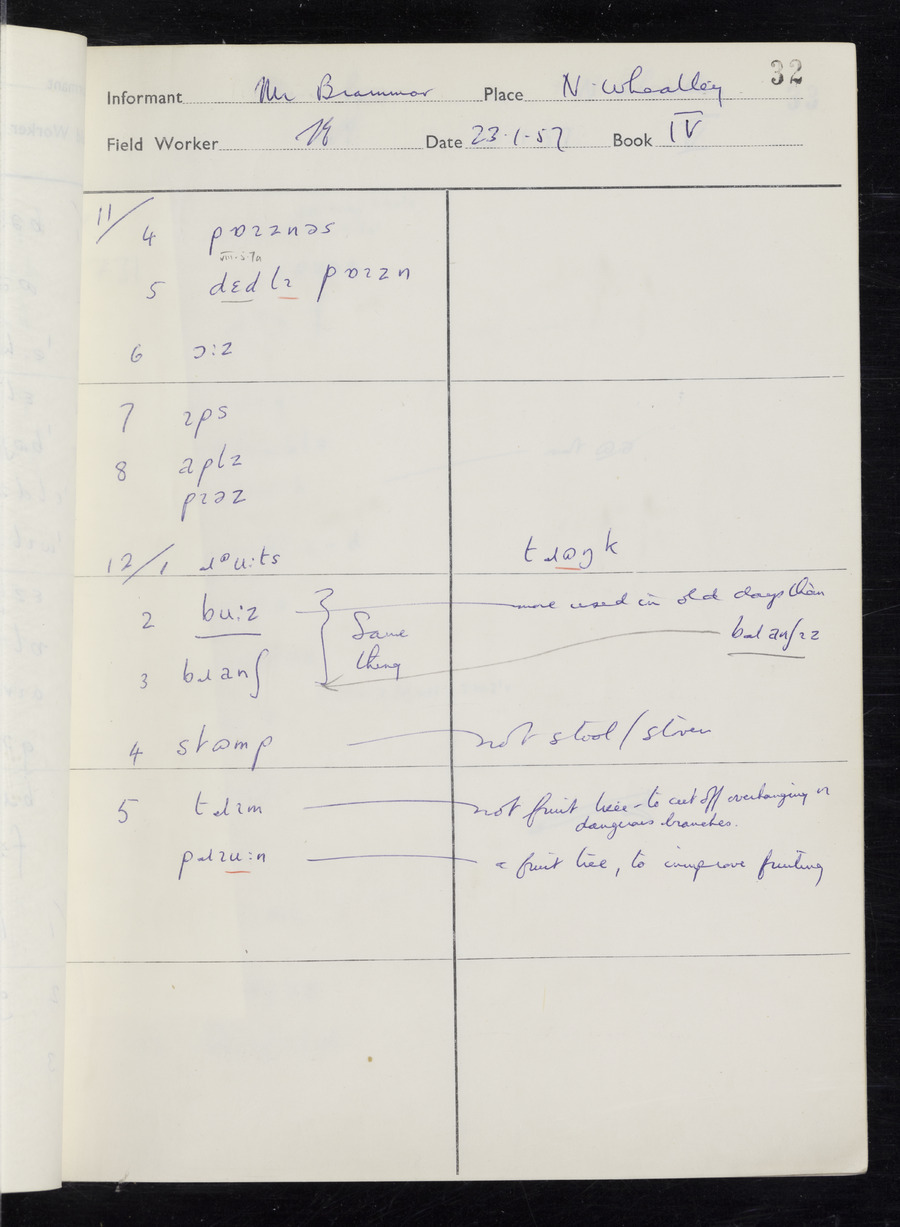 32
Informant Mr Brammar Place N. Wheatley
Field Worker Date 23.1.57 Book IV
11/ 4 pɒɪznəs
VIII.5.7a
5 dɛdlɪ pɒɪzn
6 ɔ:z
7 ɪps
8 aplz
pɪəz
12/1 ɹəu:ts tɹɷŋk
2 bu:z more used in old days than
Same bɹanʃɪz
thing
3 bɹanʃ
4 stɷmp not stool/stoven
5 tɹɪm not fruit tree - to cut off overhanging or
dangerous branches.
pɹɪu:n a fruit tree, to improve fruiting